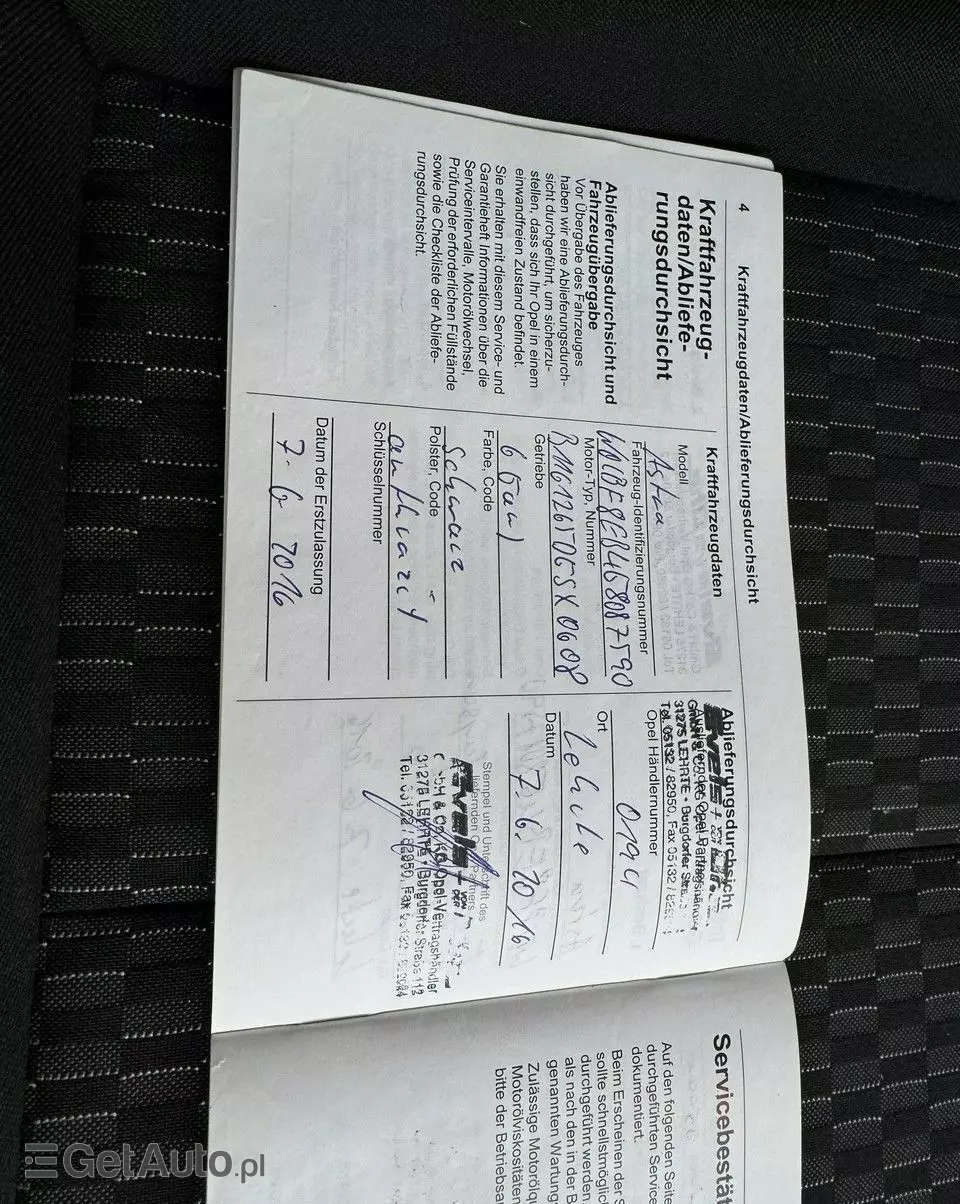 4
Kraftfahrzeugdaten/Ablieferungsdurchsicht
Kraftfahrzeug-
daten/Abliefe-
rungsdurchsicht
Ablieferungsdurchsicht und
Fahrzeugübergabe
Vor Übergabe des Fahrzeuges
haben wir eine Ablieferungsdurch-
sicht durchgeführt, um sicherzu-
stellen, dass sich Ihr Opel in einem
einwandfreien Zustand befindet.
Sie erhalten mit diesem Service- und
Garantieheft Informationen über die
Serviceintervalle, Motorölwechsel,
Prüfung der erforderlichen Füllstände
sowie die Checkliste der Abliefe-
rungsdurchsicht.
Kraftfahrzeugdaten
Modell
Astra
Fahrzeug-Identifizierungsnummer
Motor-Typ, Nummer
Getriebe
6 Gang
Farbe, Code
Schwarz
Polster, Code
anthrazit
Schlüsselnummer
Datum der Erstzulassung
7. 6 2016
Ablieferungsdurchsicht
Ausliefernder Opel Partner
31275 LEHRTE • Burgdorfer
Tel. 05132 / 82950, Fax 05132
Opel Händlernummer
Ort
Lehrte
Datum
7. 6. 2016
Stempel und Unterschrift des
liefernden Opel Partners
GmbH & Co. KG Opel-Vertragshändler
31275 LEHRTE • Burgdorfer Straße 112
Tel. 05132 / 82950, Fax
Servicebestät
Auf den folgenden Seite
durchgeführten Service
dokumentiert.
Beim Erscheinen der S
sollte schnellstmöglich
durchgeführt werden,
als nach den in der B
genannten Wartung
Zulässige Motorölqu
Motorölviskositäten
bitte der Betriebsan
GetAuto.pl